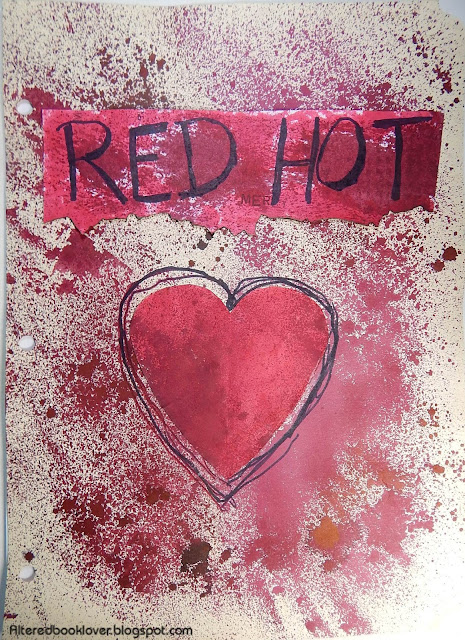 RED HOT
MER
Alteredbooklover.blogspot.com